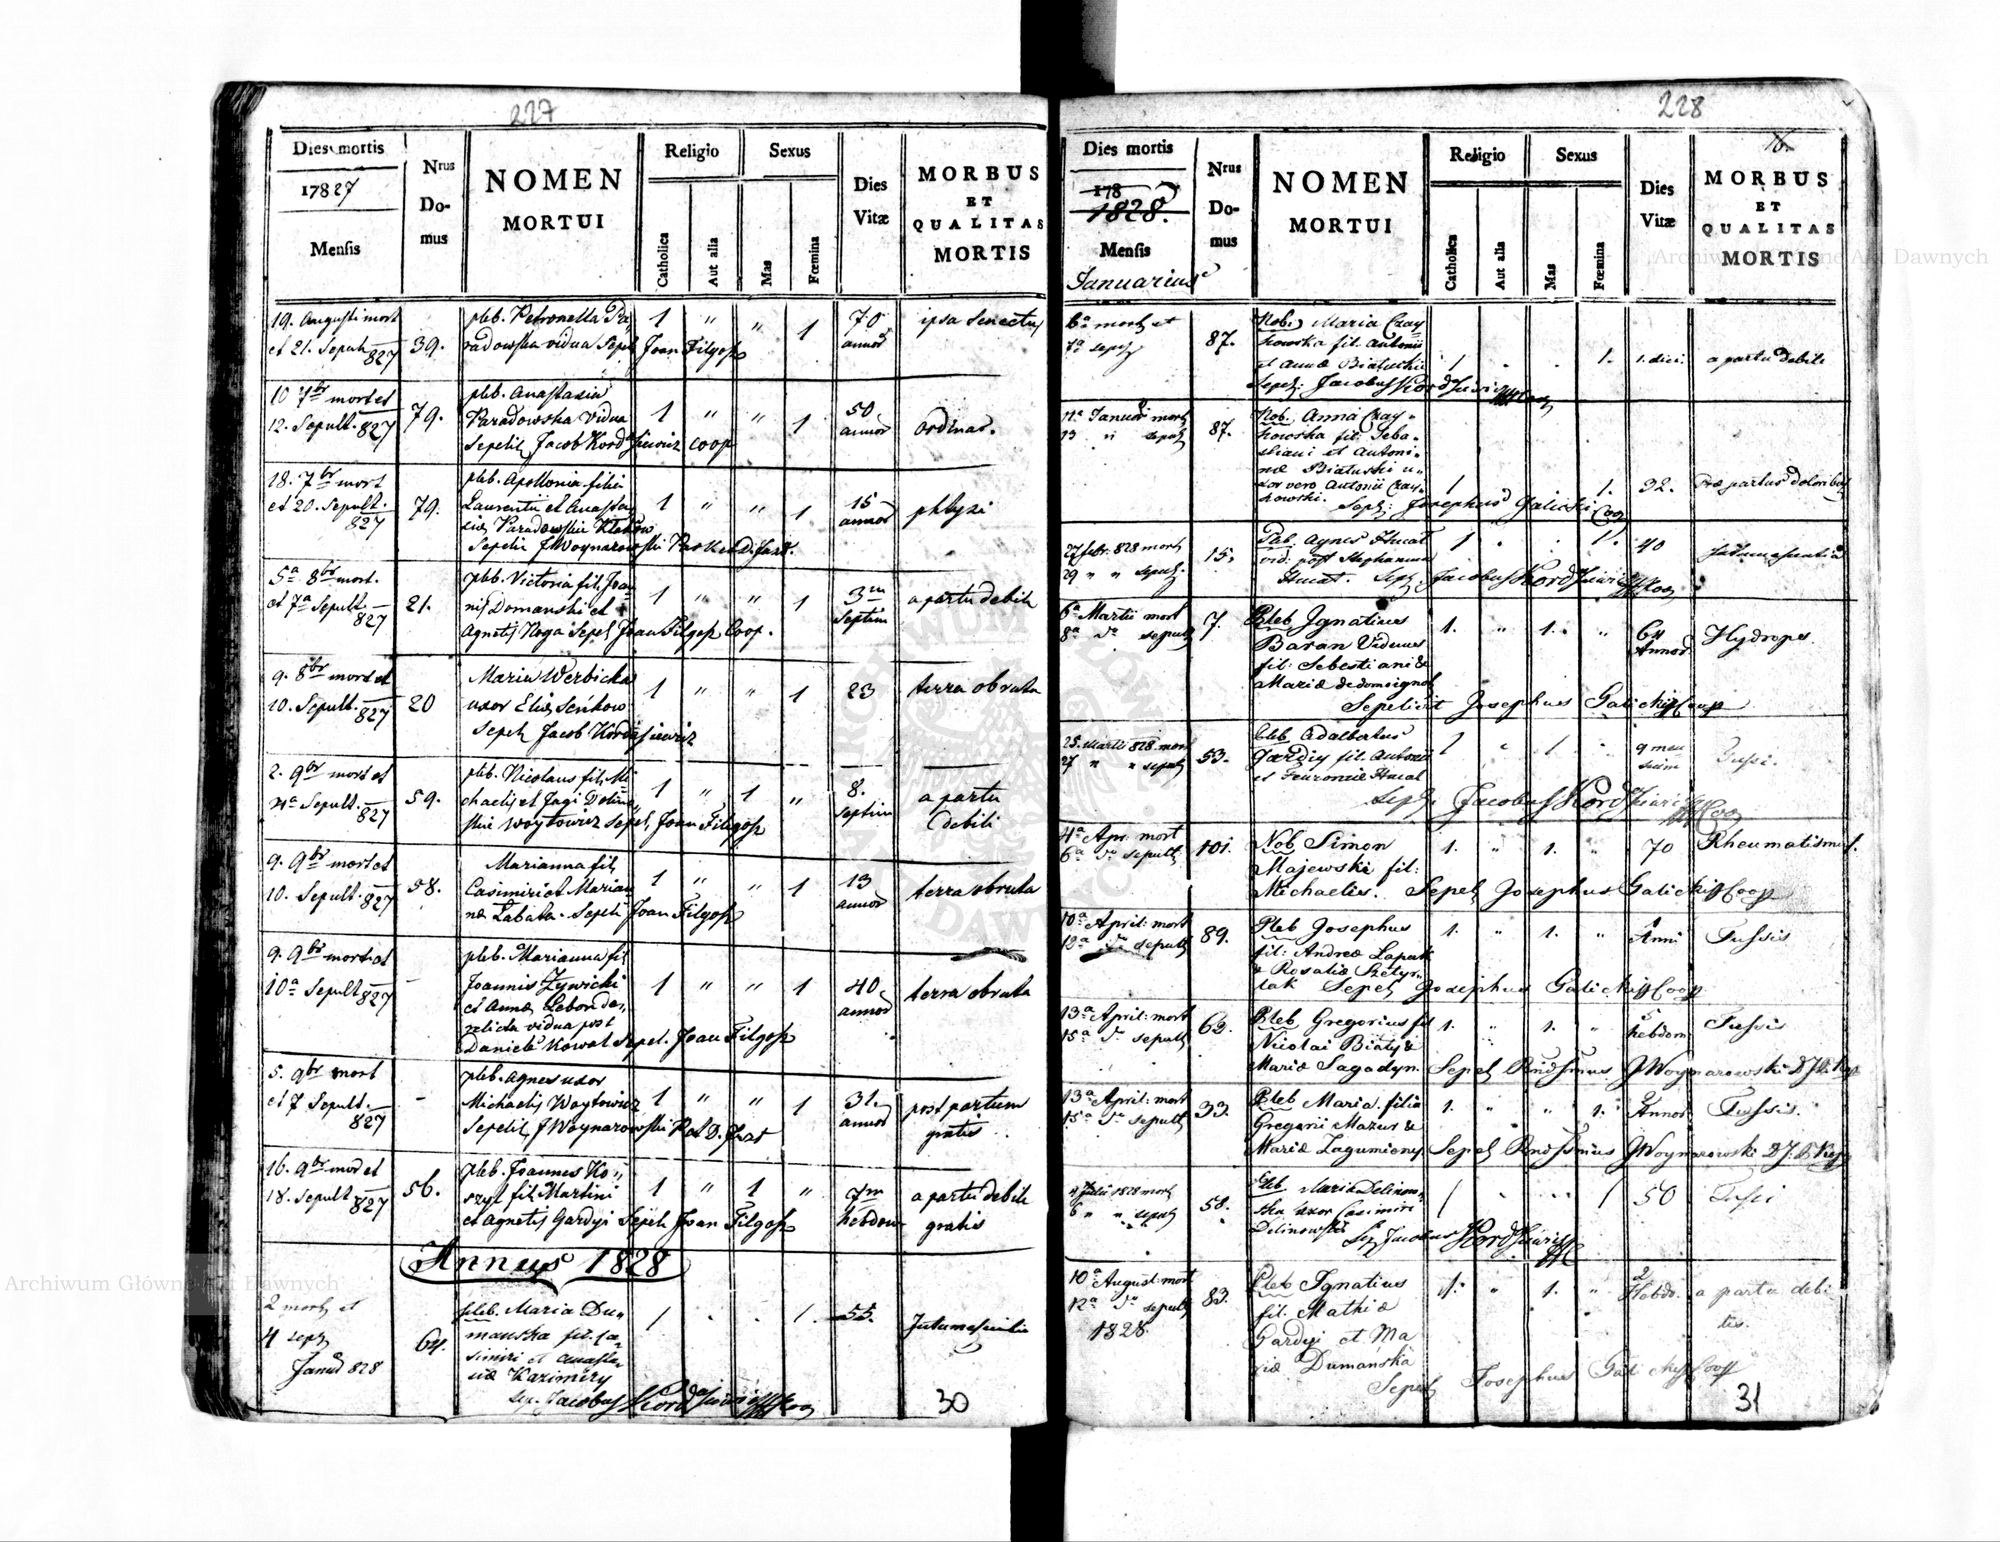 227
Dies mortis
17827
Mensis
Nrus
Do-
mus
NOMEN
MORTUI
Religio
Catholica
Aut alia
Sexus
Mas
Fœmina
Dies
Vitæ
MORBUS
ET
QUALITAS
MORTIS
19. Augusti mort
et 21. Sepult 827
39.
pleb. Petronella Pa
radowska vidua Sepeli Joan Filgosz
1 " " 1
70
annor
ipsa senectus
10 7br mort et
12. Sepult. 827
79.
pleb. Anastasia
Paradowska Vidua
Sepelit Jacob Kordasiewicz coop
1 " " 1
50
annor
ordinar.
18. 7br mort
et 20. Sepult. 827
79.
pleb. Apollonia filia
Laurentii et Anasta
siæ Paradowskie
Sepelit J Woynarowski
1 " " 1
15
annor
phtysi
5a 8br mort.
et 7a Sepult 827
21.
pleb. Victoria fil. Joan
nis Domanski et
Agnetis Noga Sepel Joan Filgosz Coop.
1 " " 1
3m
septim
a partu debili
9. 8br mort et
10. Sepult. 827
20
Maria Werbicka
uxor Eliæ Senkow
Sepeli Jacob Kordasiewicz
1 " " 1
23
terra obruta
2. 9br mort et
4a Sepult. 827
59.
pleb. Nicolaus fil. Mi
chaelis et Jagi Dolin
skie Woytowicz Sepel. Joan Filgosz
1 " 1 "
8.
septim
a partu
debili
9. 9br mort et
10. Sepult. 827
58.
Marianna fil.
Casimiri et Marian
næ Labaka. Sepeli Joan Filgosz
1 " " 1
13
annor
terra obruta
9. 9br mort et
10a Sepult 827
-
pleb. Marianna fil
Joannis Zywicki
et Annæ Lebon de
relicta vidua post
Daniele Kowal Sepel. Joan Filgosz
1 " " 1
40
annor
terra obruta
5. 9br mort
et 7 Sepult. 827
-
pleb. Agnes uxor
Michaelis Woytowicz
Sepelit J Woynarowski
1 " " 1
31.
annor
post partum
gratis
16. 9br mort et
18. Sepult 827
56.
pleb. Joannes Ko
szyl fil. Martini
et Agnetis Gardyi Sepeli Joan Filgosz
1 " 1 "
7m
hebdom
a partu debili
gratis
Annus 1828
2 mort et
4 sept
Januar 828
64.
pleb. Maria Du
manska fil. Ca
simiri et Anasta
siæ Kazimiry
sep. Jacobus Kordasiewicz Coop
1 . . 1.
55.
Intumescentia
30
228
Dies mortis
178
1828.
Mensis
Januarius
Nrus
Do-
mus
NOMEN
MORTUI
Religio
Catholica
Aut alia
Sexus
Mas
Fœmina
Dies
Vitæ
MORBUS
ET
QUALITAS
MORTIS
6a mort et
7a sept
87.
Nob. Maria Czay
kowska fil. Antonii
et Annæ Bialuski
Sept. Jacobus Kordasiewicz Coop
1 . . 1.
1. diei
a partu debili
11a Januar mort
13 " sepult
87.
Nob. Anna Czay
kowska fil. Seba
stiani et Antoni
næ Bialuski u
xor vero Antonii Czay
kowski.
Sept. Josephus Galicki Coop
1 . . 1.
32.
præ partus doloribus
27 febr. 828 mort
29 " " sepult.
15.
Pleb. Agnes Hucat
vid. post Stephanum
Hucat. Sept. Jacobus Kordasiewicz Coop
1 . . 1.
40
Intumescentia
6a Martii mort
8a do sepult
7.
Pleb Ignatius
Baran Viduus
fil: Sebestiani &
Mariæ de domo ignot
Sepelivit Josephus Galicki Coop
1. " 1. "
64
Annor
Hydrops
25. Martii 828 mort
27 " " sepult
53.
Pleb Adalbertus
Gardiy fil. Antonii
et Hucat
Sept. Jacobus Kordasiewicz Coop
1 " 1 .
9 men
sium
Tussi.
4a Apr. mort
6a do sepult
101.
Nob Simon
Majewski fil:
Michaelis. Sepel Josephus Galicki Coop
1. " 1. "
70
Rheumatismus.
10a April: mort
12a do sepult
89.
Pleb Josephus
fil: Andreæ Lapat
& Rosaliæ Szetyr
tak Sepel Josephus Galicki Coop
1. " 1. "
Anni
Tussis
13a April: mort
15a do sepult
62.
Pleb Gregorius fil
Nicolai Bialy &
Mariæ Sagadyn. Sepel Rndssimus J Woynarowski
1. " 1. "
5
hebdom
Tussis
13a April: mort
15a do sepult
33.
Pleb Maria filia
Gregorii Mazur &
Mariæ Zagumieny Sepel Rndssimus J Woynarowski
1. " " 1.
Annor
Tussis.
4 Julii 1828 mort
6 " " sepult
58.
Pleb. Maria Delinow
ska uxor Casimiri
Delinowski Sep. Jacobus Kordasiewicz
1 . . 1
50
Tussi
10a August: mort
12a do sepult
1828.
83.
Pleb Ignatius
fil. Mathiæ
Gardyi et Ma
riæ Dumanska
Sepel Josephus Galicki Coop
1. " 1. "
2
Hebdo.
a partu debi
lis.
31
Archiwum Główne Akt Dawnych